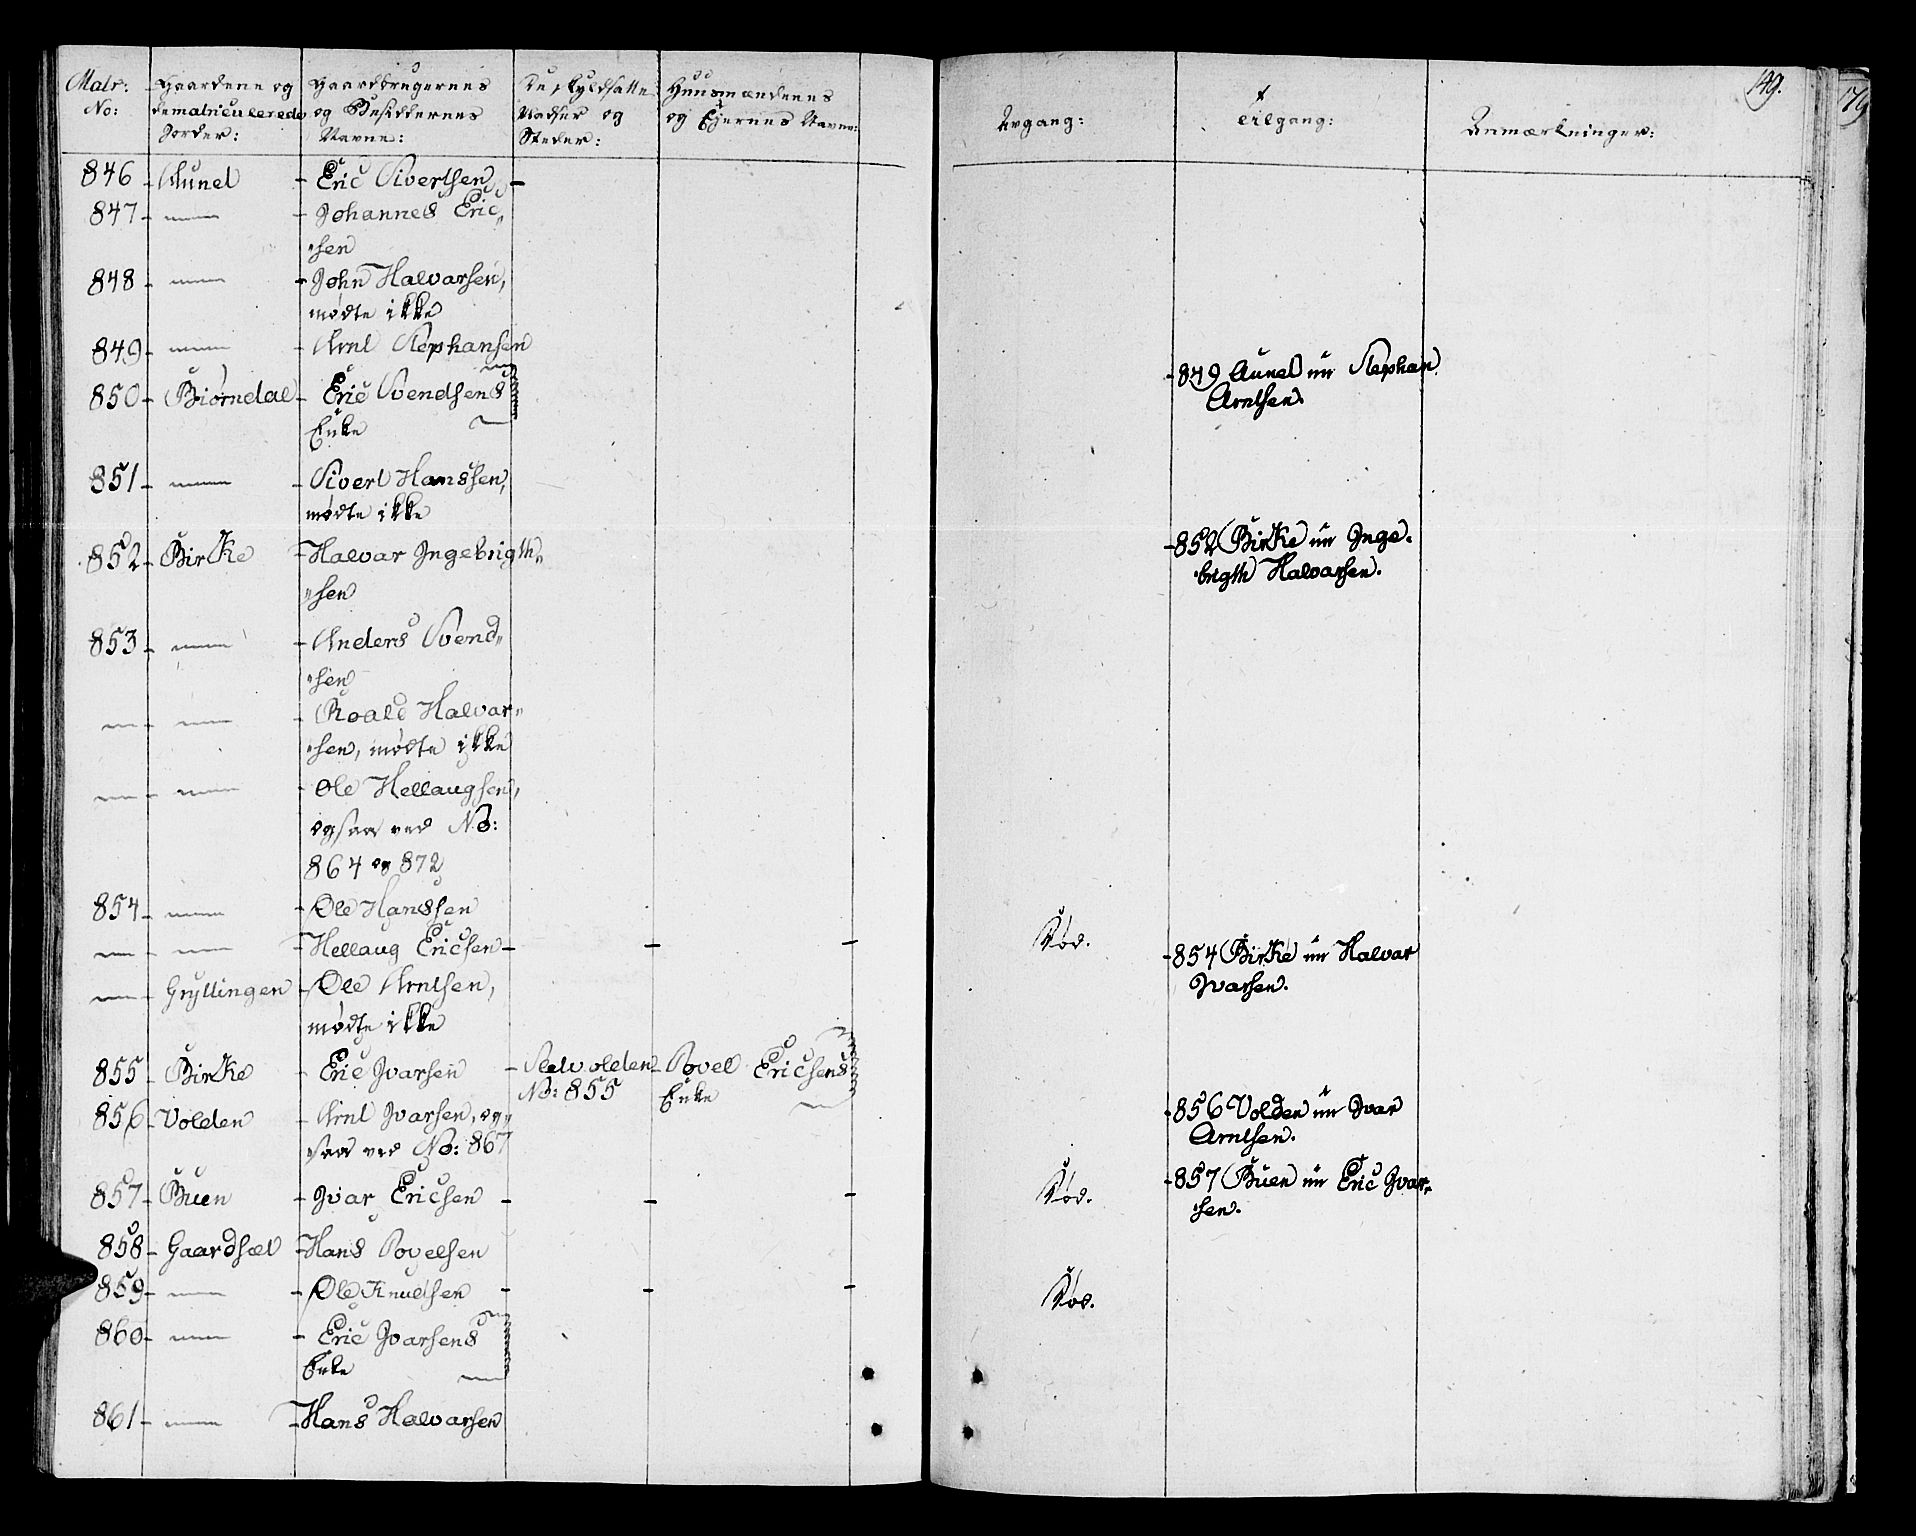 Matr: No:
Gaardene og de matriculerede Jorder:
Gaardbrugernes og Besiddernes Navne:
Uskyldsatte Pladser og Steder:
Huusmændenes og Ejernes Navne:
846 - Aunet - Eric Sivertsen -
847 - " - Johannes Eric„
„sen
848 - " - John Halvarsen,
mødte ikke
849 - " - Arnt Stephansen
850 - Biørndal - Eric Svendsens
Enke
851 - " - Sivert Hanssen,
mødte ikke
852 - Birke - Halvar Ingebrigth„
„sen
853 - " - Anders Svend„
„sen
" - " - Roald Halvar„
„sen, mødte ikke
" - " - Ole Hellaugsen,
ogsaa ved No:
864 og 872
854 - " - Ole Hanssen
" - " - Hellaug Ericsen - - -
" - Gryllingen - Ole Arntsen,
mødte ikke
855 - Birke - Eric Ivarsen - Sletvolden - Povel Ericsens
No: 855 Enke
856 - Volden - Arnt Ivarsen, og„
„saa ved No: 867
857 - Buen - Ivar Ericsen - - -
858 - Gaardsæt - Hans Povelsen
859 - " - Ole Knudsen - - -
860 - " - Eric Ivarsens
Enke
861 - " - Hans Halvarsen
149.
179
Avgang:
Tilgang:
Anmærkninger:
- 849 Aunet nu Stephan
Arntsen.
- 852 Birke nu Inge„
„brigth Halvarsen.
Død.
- 854 Birke nu Halvar
Ivarsen.
- 856 Volden nu Ivar
Arntsen.
Død.
- 857 Buen nu Eric Ivar„
„sen.
Død.